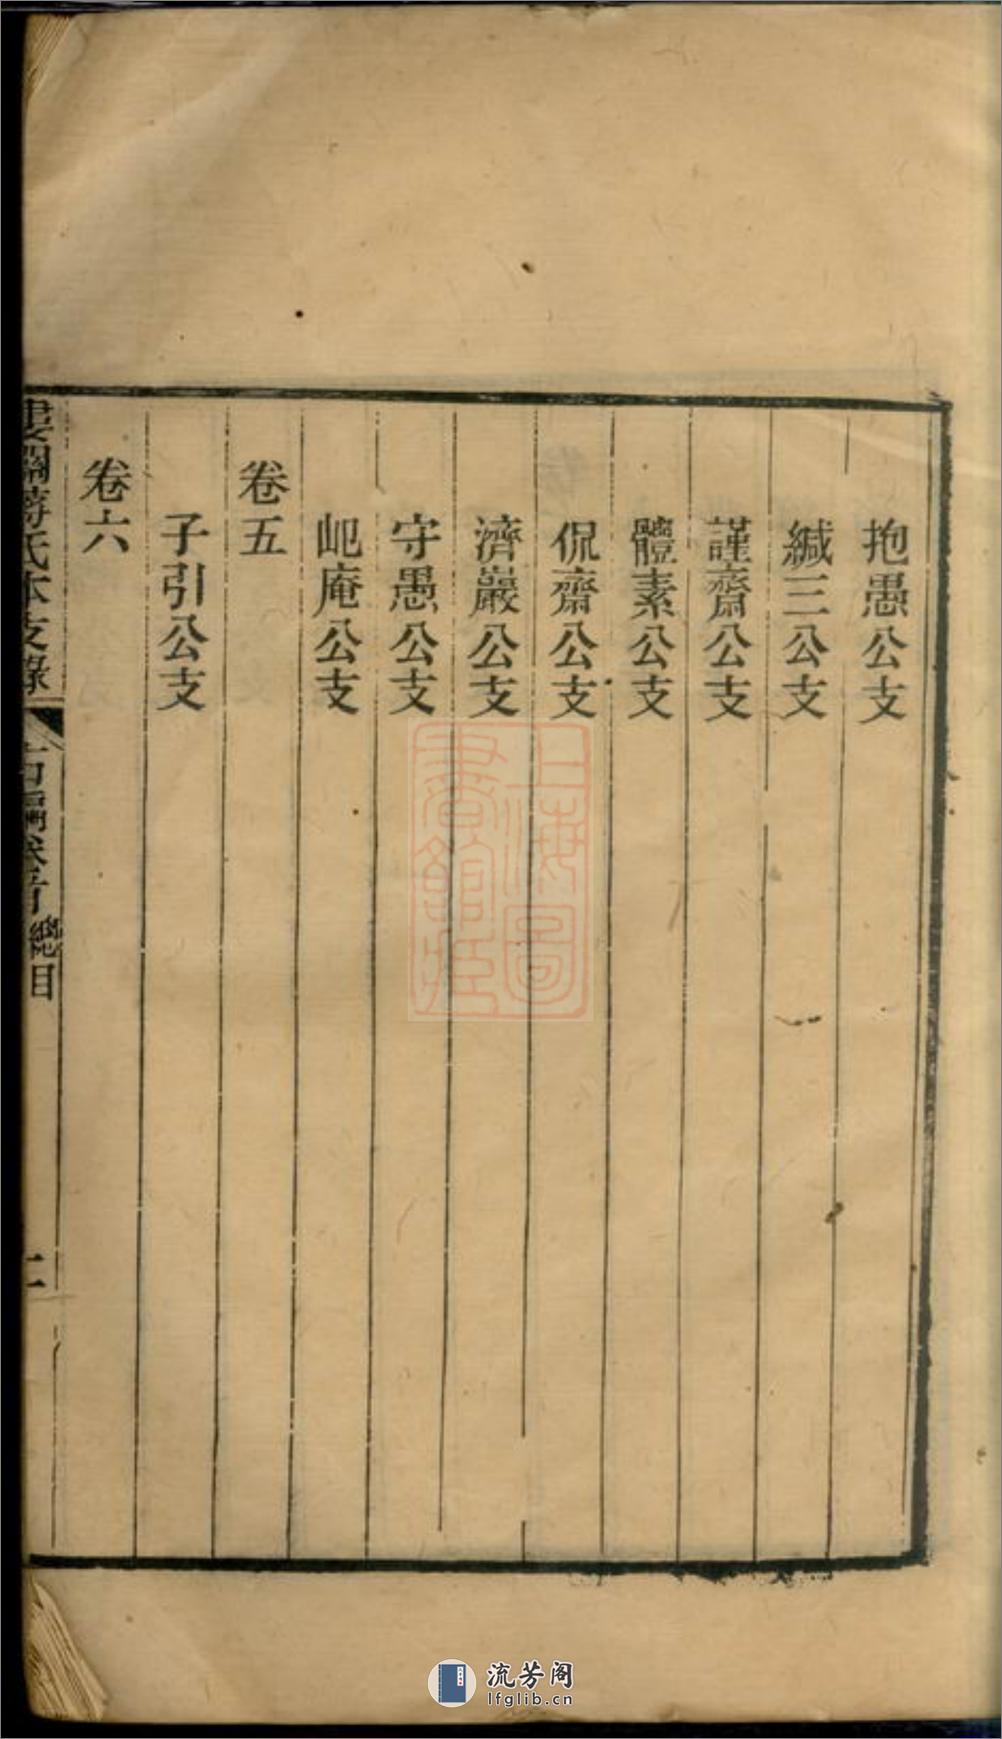 抱愚公支
緘三公支
謹齋公支
體素公支
侃齋公支
濟巖公支
守愚公支
屺庵公支
卷五
子引公支
卷六
婁關蔣氏本支錄
總目
二
上海圖
書館藏
流芳阁
lfglib.cn